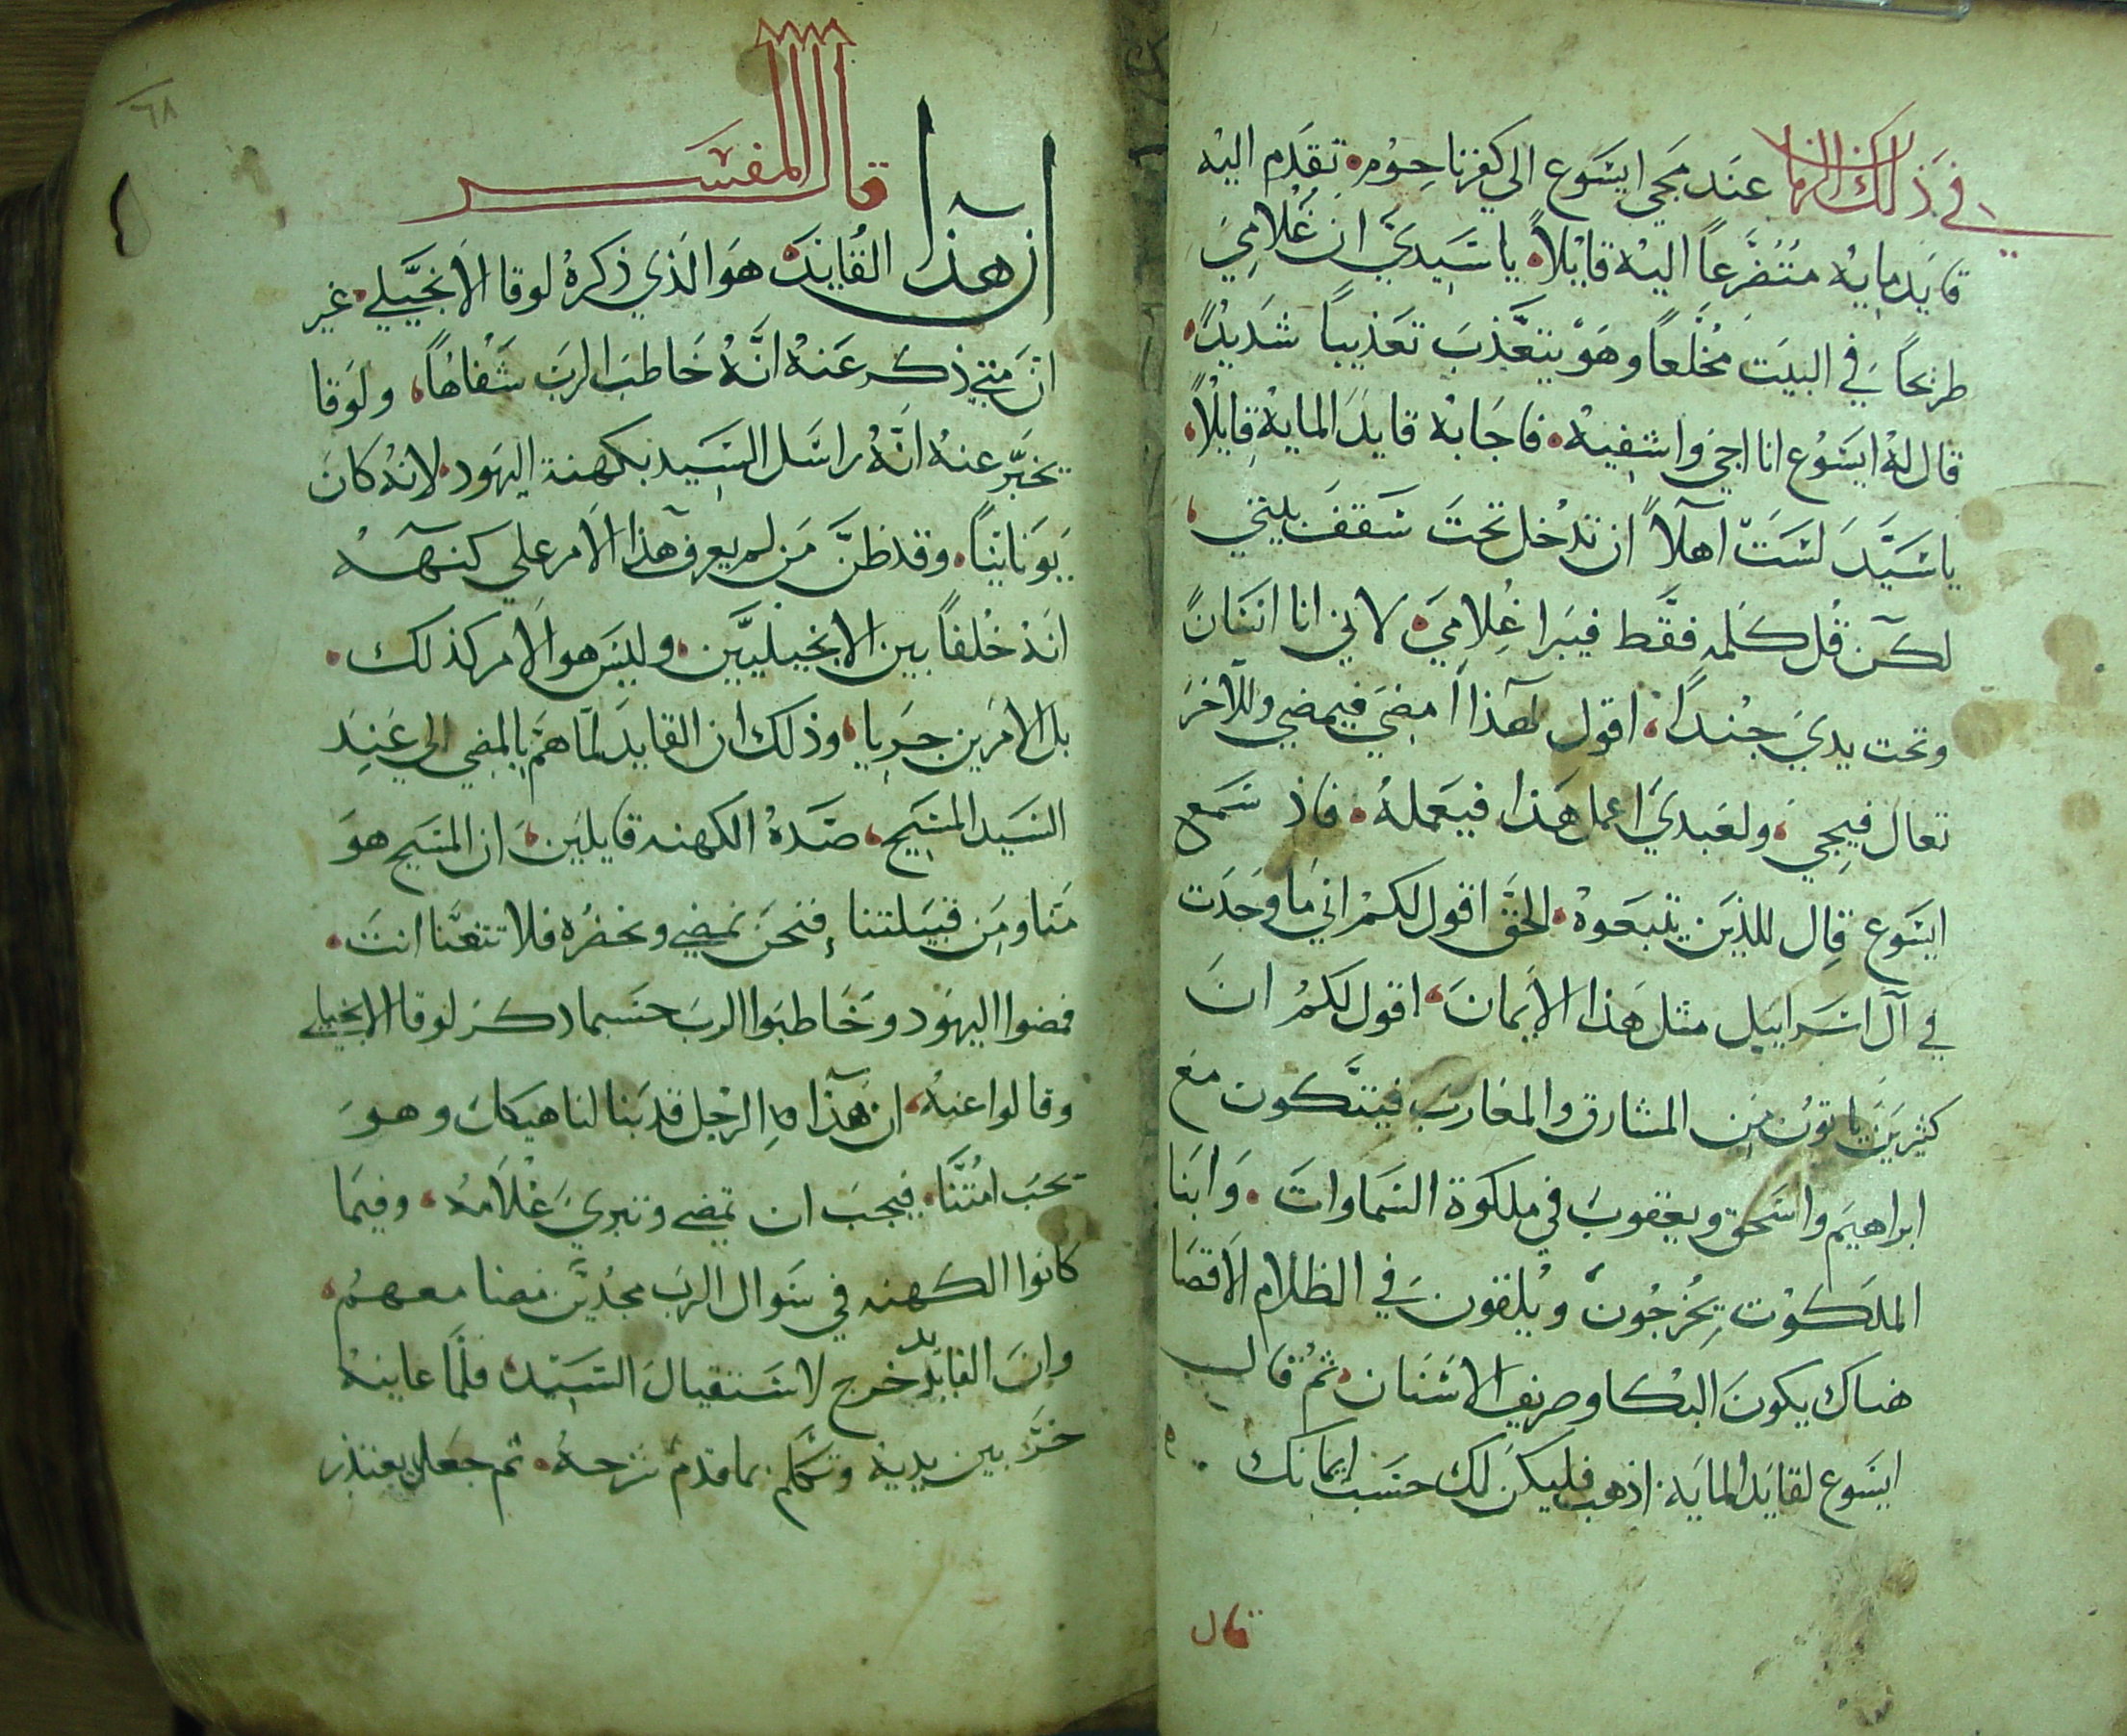 في ذلك الزمان عند مجي ايسوع الى كفرناحوم تقدم اليه
قايد مايه متضرعاً اليه قايلاً يا سيدي ان غلامي
طريحاً في البيت مخلعاً وهو يتعذب تعذيباً شديداً
قال له ايسوع انا اجي واشفيه فاجابه قايد المايه قايلاً
يا سيد لست آهلاً ان تدخل تحت سقف بيتي
لكن قل كلمه فقط فيبرا غلامي لاني انا انسانً
وتحت يدي جنداً اقول لهذا امضي فيمضي وللاخر
تعال فيجي ولعبدي اعمل هذا فيعمله فاذ سمع
ايسوع قال للذين يتبعوه الحق اقول لكم اني ما وجدت
في آل اسراييل مثل هذا الايمان اقول لكم ان
كثيرين ياتون من المشارق والمغارب فيتكون مع
ابراهيم واسحق ويعقوب في ملكوة السماوات وابنا
الملكوت يخرجون ويلقون في الظلام الاقصا
هناك يكون البكا وصريف الاسنان ثم قال
ايسوع لقايد المايه اذهب فليكن لك حسب ايمانك
قال
٦٨
قال المفسر
ان هذا القايد هو الذي ذكره لوقا الانجيلي غير
ان متي ذكر عنه انه خاطب الرب شفاهاً ولوقا
يخبر عنه انه راسل السيد بكهنة اليهود لانه كان
يونانياً وقد ظن من لم يعرف هذا الامر علي كنهه
انه خلفاً بين الانجيليين وليس هو الامر كذلك
بل الامرين جريا وذلك ان القايد لما هم بالمضي الي عند
السيد المسيح صده الكهنه قايلين ان المسيح هو
منا ومن قبيلتنا فنحن نمضي ونحضره فلا تتعنا انت
فمضوا اليهود وخاطبوا الرب حسبما ذكر لوقا الانجيلي
وقالوا عنه ان هذا الرجل قد بنا لنا هيكلاً وهو
يحب امتنا فيجب ان تمضي وتبري غلامه وفيما
كانوا الكهنه في سوال الرب مجدين مضا معهم
وان القايد خرج لاستقبال السيد فلما عاينه
خر بين يديه وتكلم بما قدم شرحه ثم جعل يعتذر